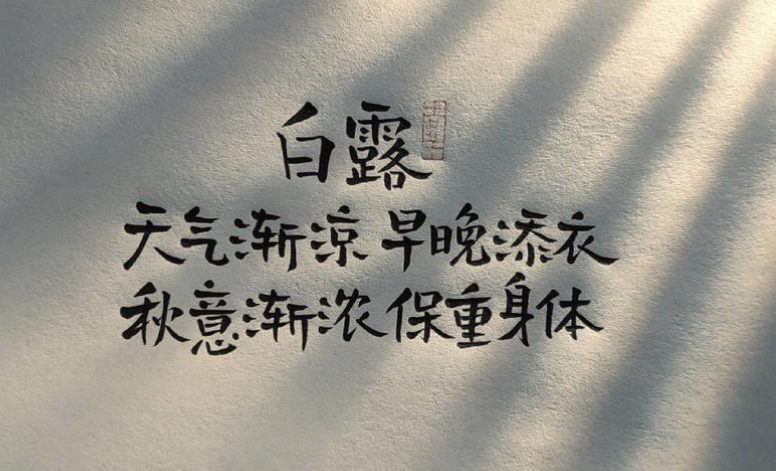 白露
天气渐凉 早晚添衣
秋意渐浓 保重身体